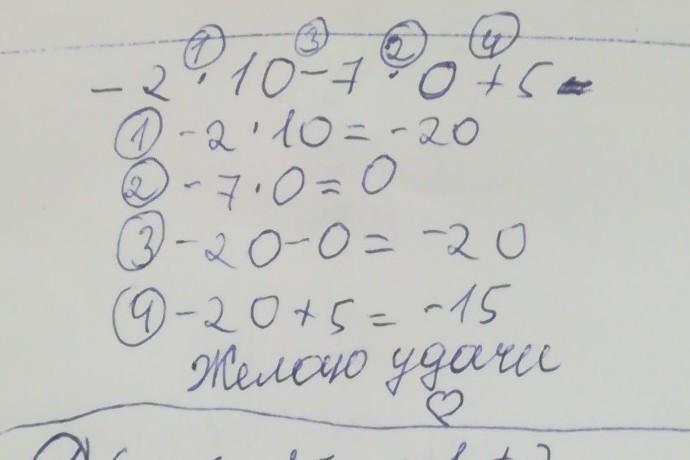 ① ③ ② ④
-2 · 10 - 7 · 0 + 5
① -2 · 10 = -20
② -7 · 0 = 0
③ -20 - 0 = -20
④ -20 + 5 = -15
Желаю удачи
♡